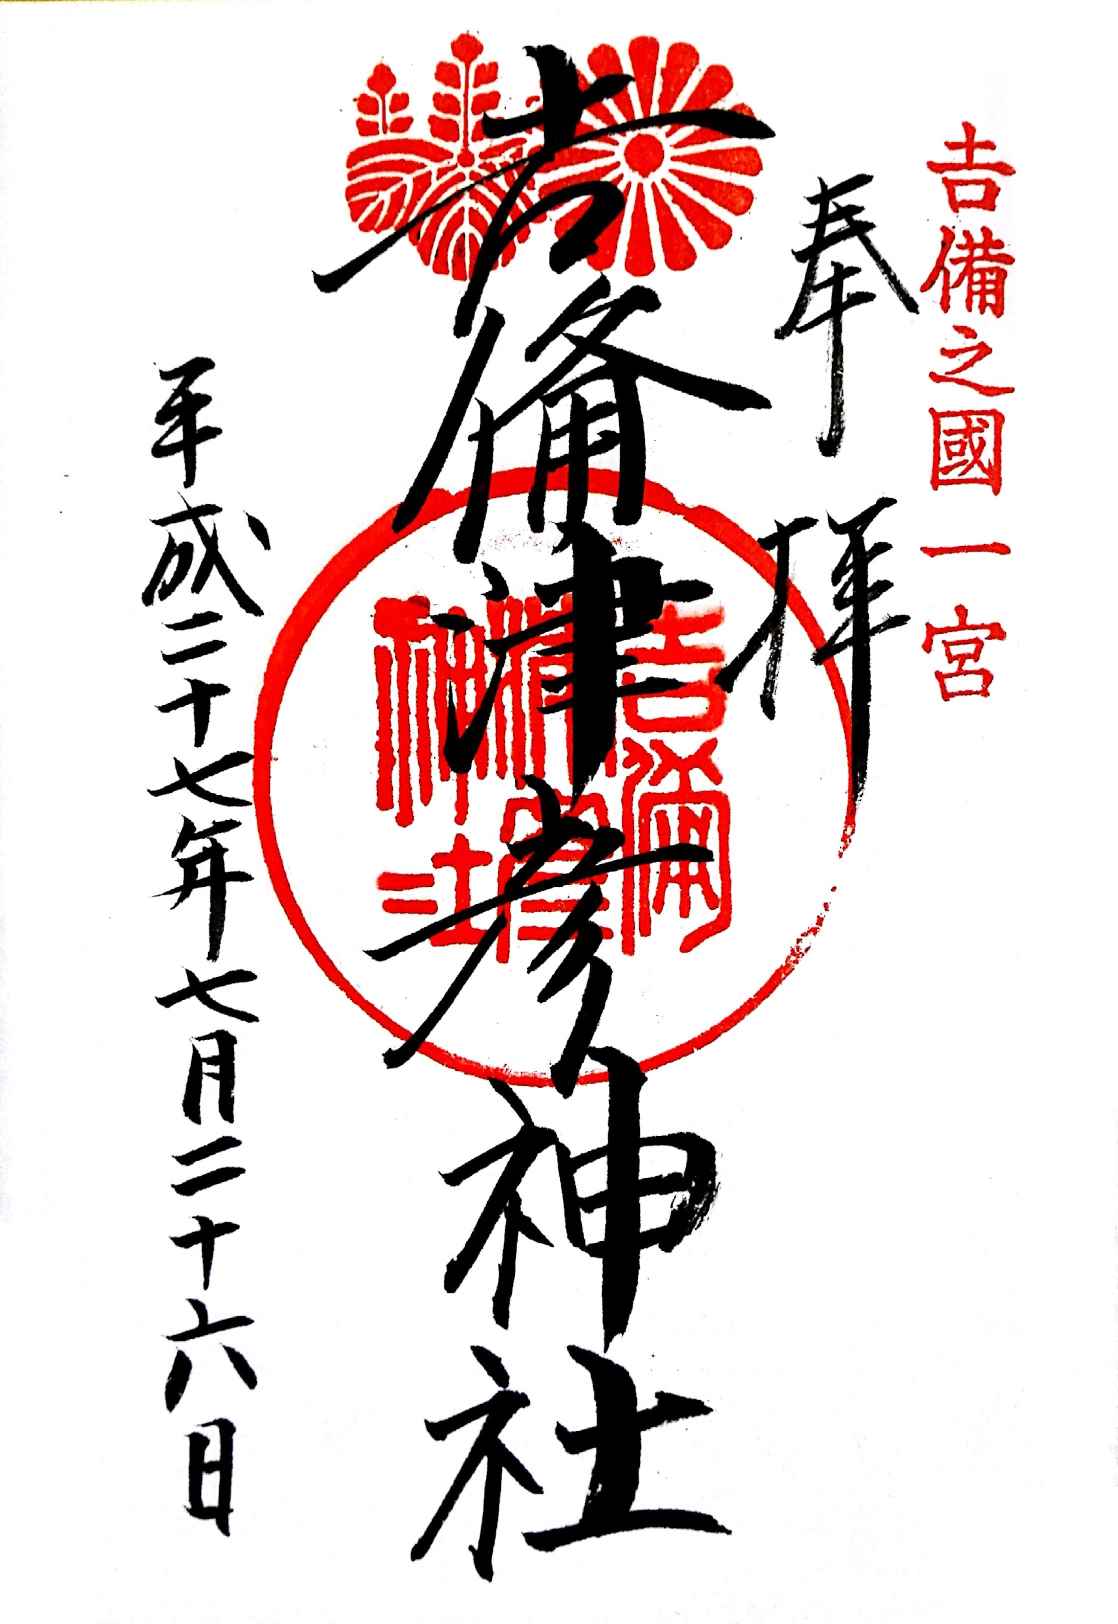 𠮷備之國一宮
奉拝
𠮷備津彦神社
𠮷備
津彦
神社
平成二十七年七月二十六日